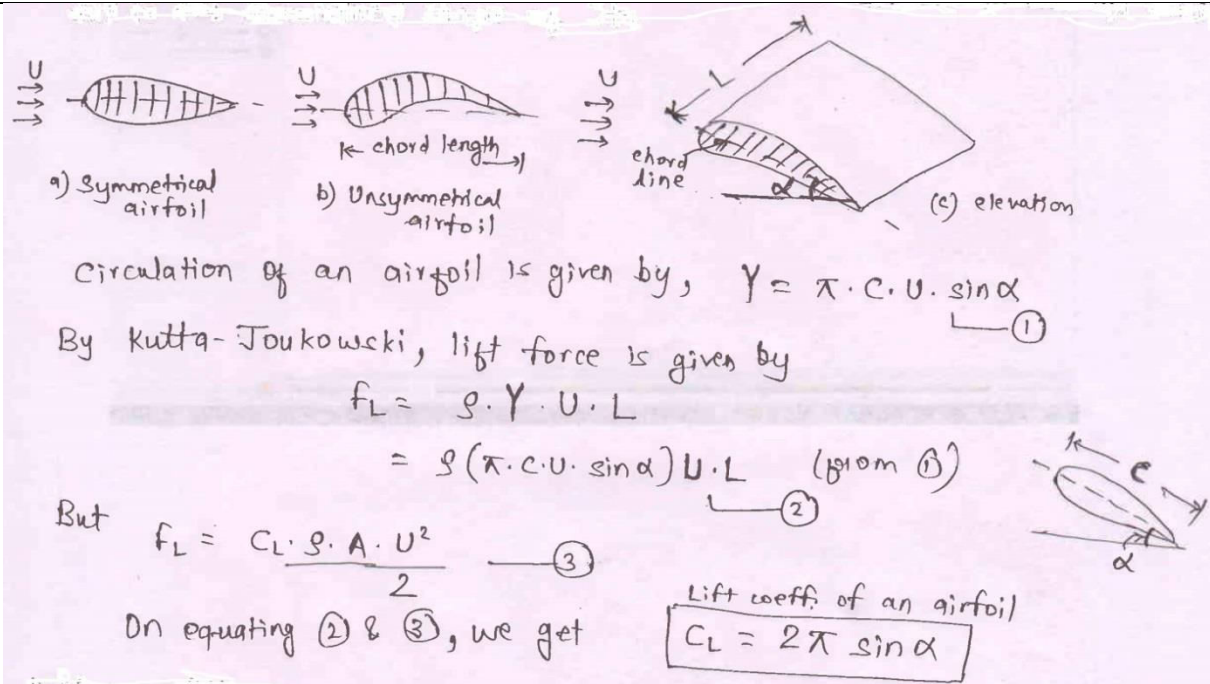 U
U
U
L
chord length
chord line
α
a) Symmetrical airfoil
b) Unsymmetrical airfoil
(c) elevation
Circulation of an airfoil is given by, γ = π. C. U. sinα
①
By Kutta-Joukowski, lift force is given by
fL = ρ. γ. U. L
= ρ(π. C. U. sinα) U. L (from ①)
②
C
α
But fL = CL. ρ. A. U² / 2 ③
On equating ② & ③, we get
Lift coeff. of an airfoil
CL = 2π sinα